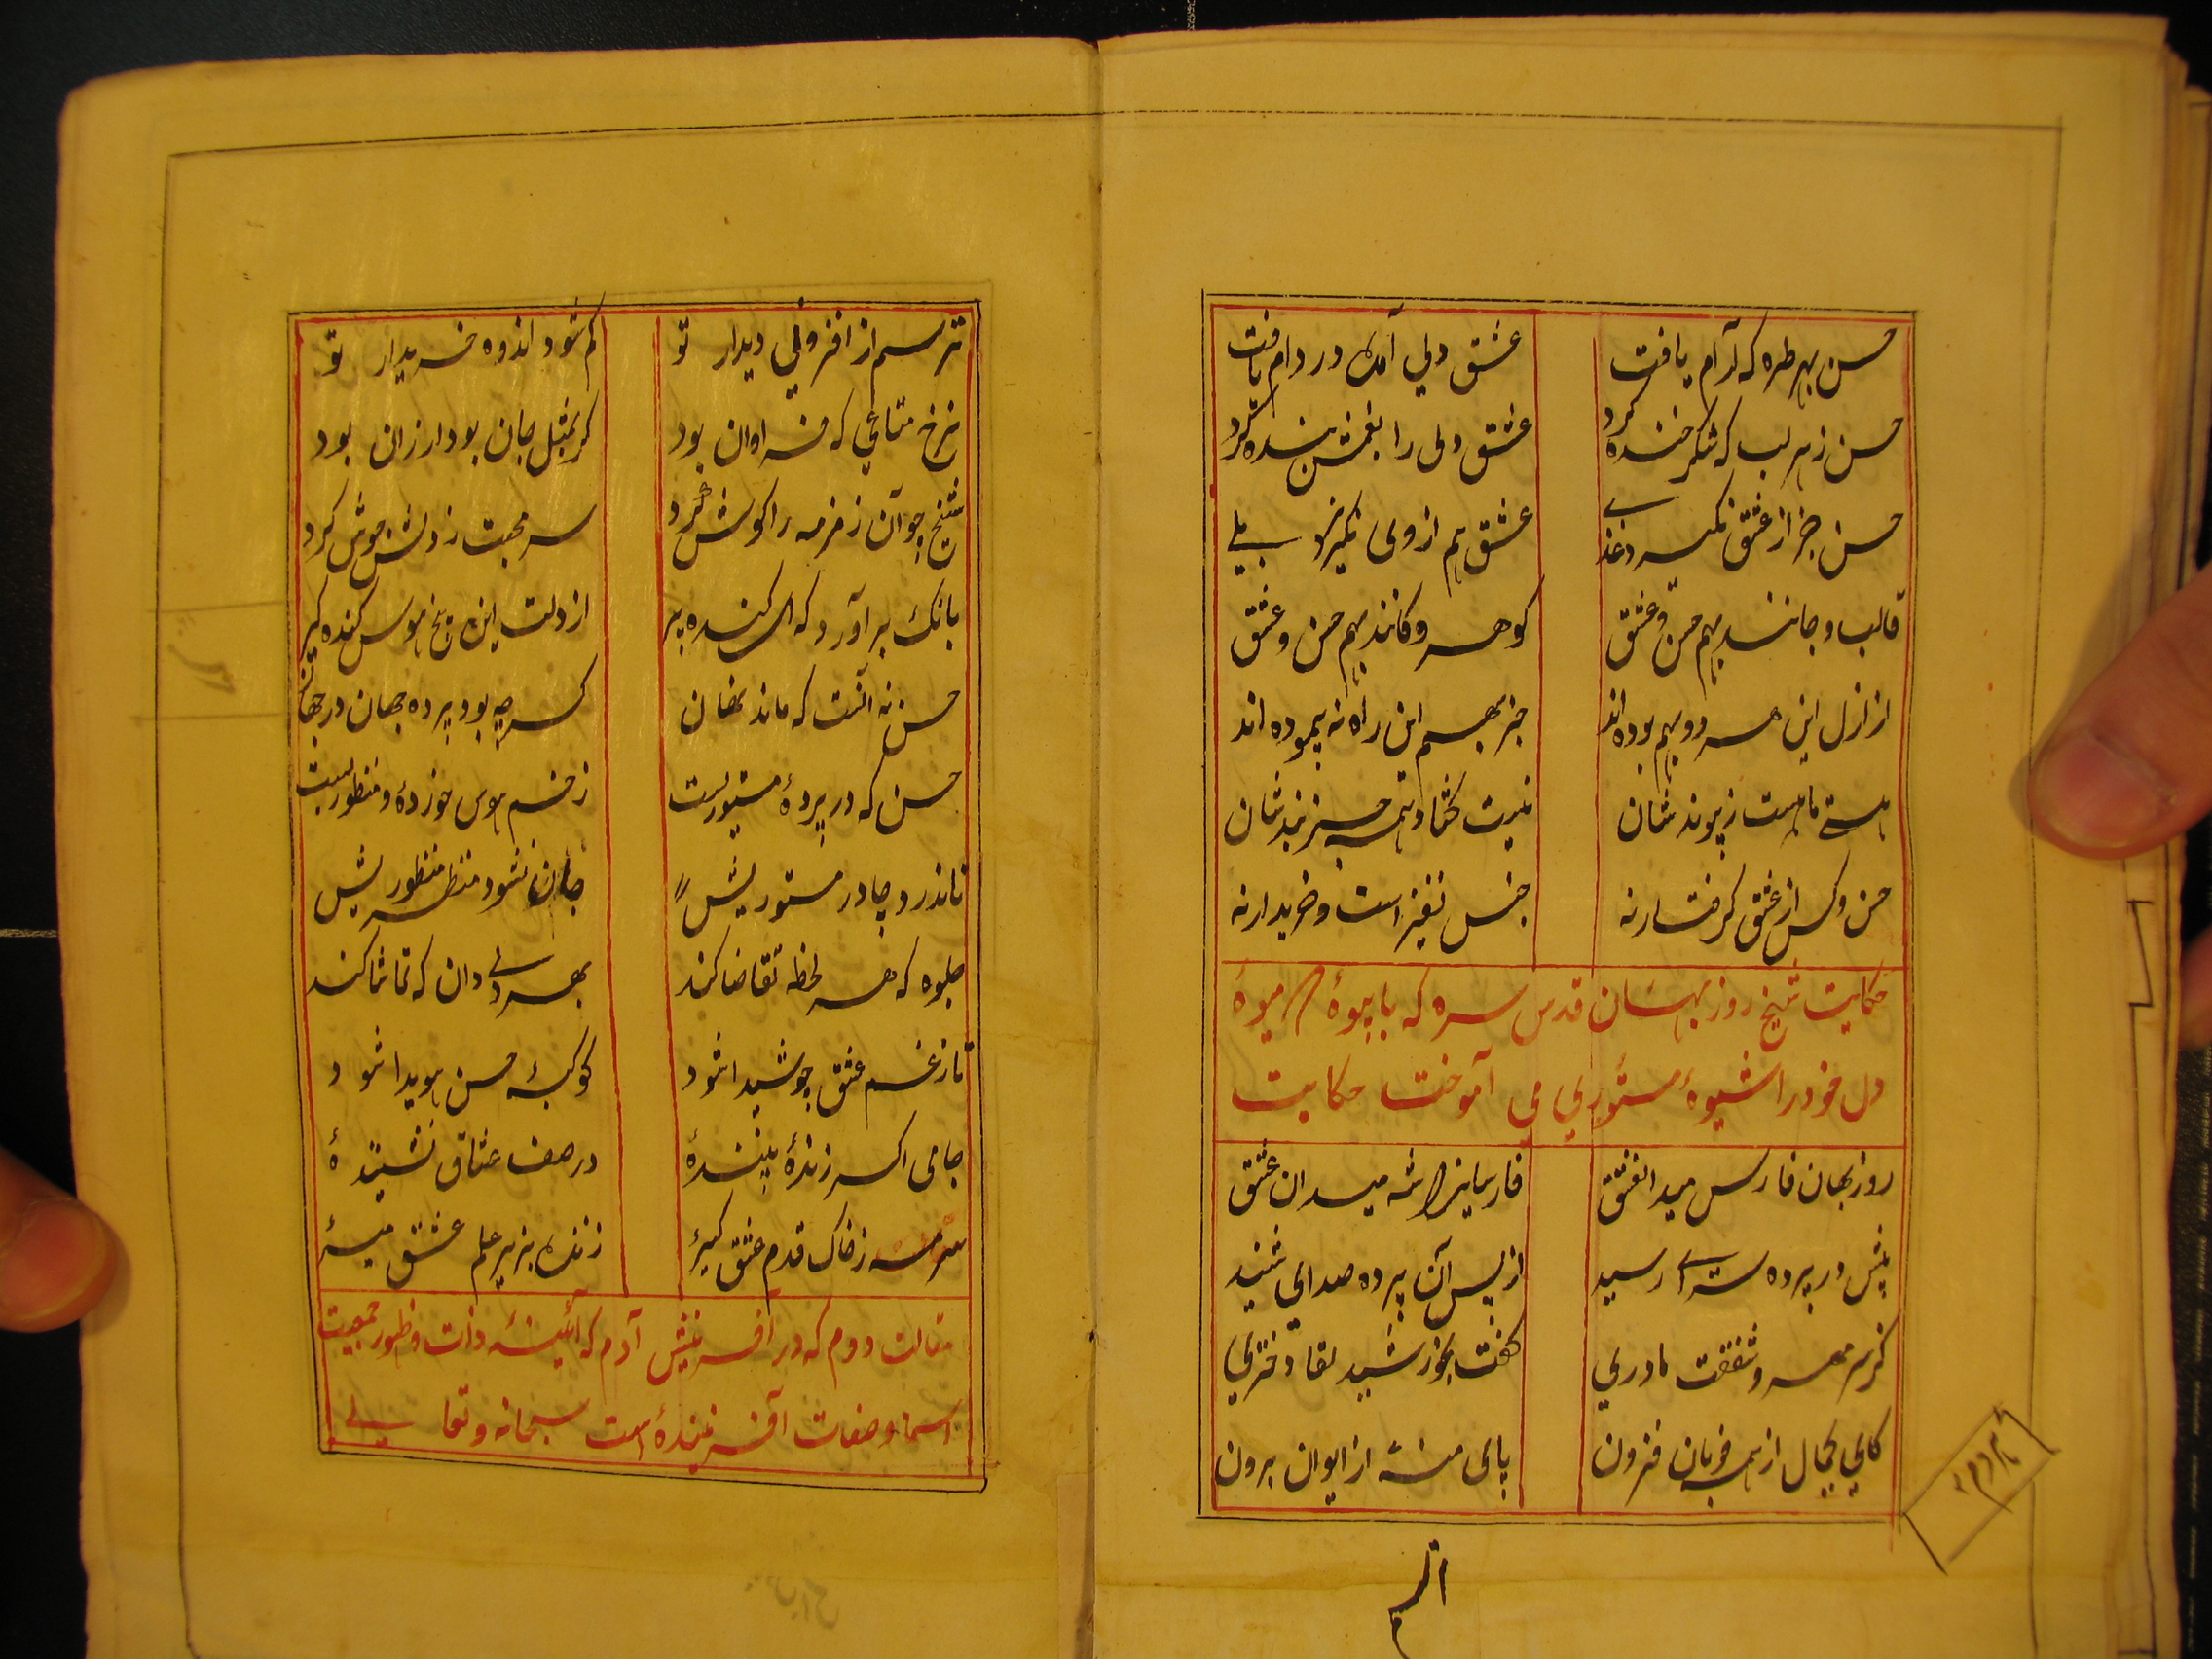 حسن بهر طره که آرام یافت عشق دلی آمده در دام یافت
حسن ز هر لب که شکر خنده کرد عشق دلی را بغمش بنده کرد
حسن جز از عشق نگیرد غذی عشق هم از وی نگریزد بلی
قالب و جانند بهم حسن و عشق گوهر و کانند بهم حسن و عشق
از ازل این هر دو بهم بوده اند جز بهم این راه نه پیموده اند
هستی ما هست ز پیوند شان نیست گشاد همه جز بند شان
حسن و کس از عشق گرفتار نه جنس نغیز است و خریدار نه
حکایت شیخ روز بهان قدس سره که با بیوه میوهٔ
دل خود را شیوهٔ مستوری می آموخت حکایت
روز بهان فارس میدان عشق فارسیانرا شه میدان عشق
پیش در پرده سرائی رسید از پس آن پرده صدای شنید
کز سر مهر و شفقت مادری گفت بخورشید لقا دختری
کای بجمال از همه خوبان فزون پای منه از ایوان برون
ترسم از افزونی دیدار تو کم شود اندوه خریدار تو
نرخ متاعی که فراوان بود گر بمثل جان بود ارزان بود
شیخ چو آن زمزمه را گوش کرد سر محبت ز دلش جوش کرد
بانک برآورد که ای گنده پیر از دلت این بیخ هوس کنده گیر
حسن نه آنست که ماند نهان گرچه بود پرده جهان در جهان
حسن که در پردهٔ مستوریست زخم هوس خوردهٔ و منظوریست
تا ندرد چادر مستوریش جان نشود منظر منظوریش
جلوه که هر لحظه تقاضا کند بهر دلی دان که تماشا کند
تا ز غم عشق چو شیدا شود کوکبهٔ حسن هویدا شود
جامی اگر زندهٔ بینندهٔ در صف عشاق نشینندهٔ
سرمه ز خاک قدم عشق گیر زنده بزیر علم عشق میر
مقالت دوم که در آفرینش آدم که آئینهٔ ذات و ظهور جمعیت
اسما و صفات آفرینندهٔ است سبحانه و تعالی